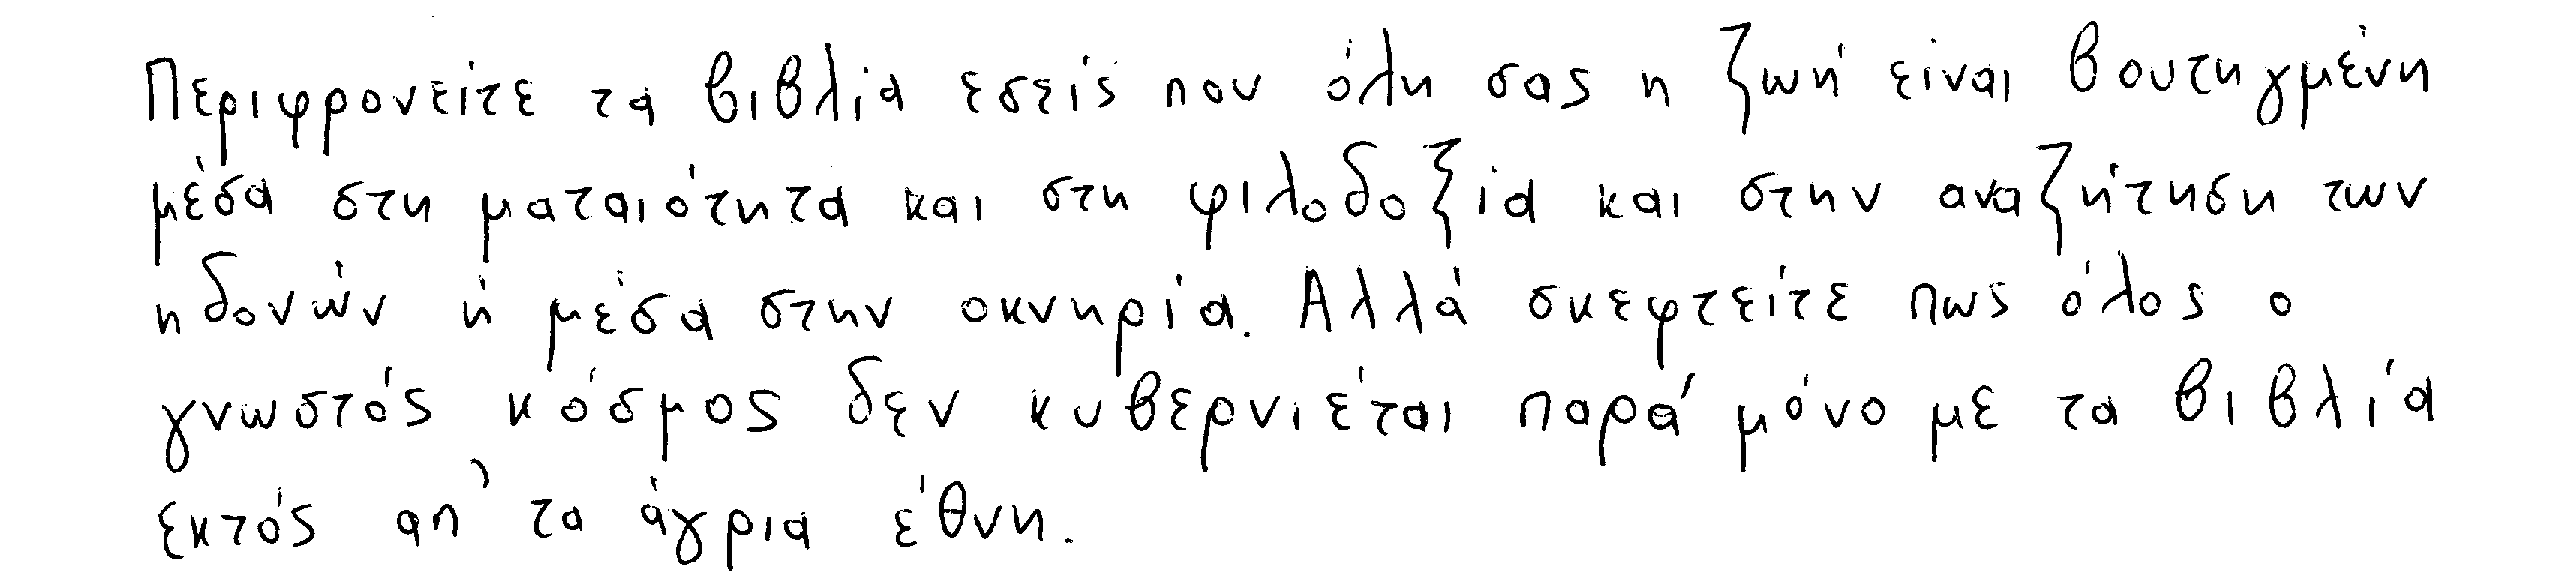 Περιφρονείτε τα βιβλία εσείς που όλη σας η ζωή είναι βουτηγμένη
μέσα στη ματαιότητα και στη φιλοδοξία και στην αναζήτηση των
ηδονών ή μέσα στην οκνηρία. Αλλά σκεφτείτε πως όλος ο
γνωστός κόσμος δεν κυβερνιέται παρά μόνο με τα βιβλία
εκτός απ' τα άγρια έθνη.